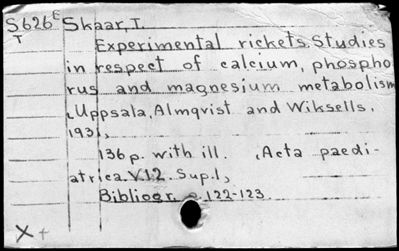 S626E Skaar, T.
T
Experimental rickets. Studies
in respect of calcium, phospho
rus and magnesium metabolism
Uppsala, Almqvist and Wiksells.
1931,
136 p. with ill. (Acta paedi-
atrica. V.12. Sup. 1,
Bibliogr. p. 122-123.
X +